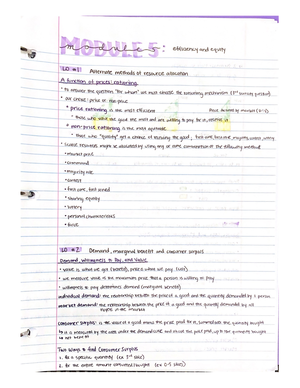 MODULE 5: efficiency and equity
LO #1: Alternate methods of resource allocation
A function of prices: rationing
• to answer the question "for whom" we must choose the rationing mechanism
• our choice: price or non price
• price rationing is the most efficient
• those who value the good the most and are willing to pay for it, receive it
• non-price rationing is the most equitable
• those who "qualify" get a chance at receiving the good
• scarce resources might be allocated by using any or some combination of the following methods
• market price
• command
• majority rule
• contest
• first come, first served
• sharing equally
• lottery
• personal characteristics
• force
LO #2: Demand, marginal benefit and consumer surplus
Demand, Willingness to Pay, and Value
• value is what we get (benefit), price is what we pay (cost)
• we measure value as the maximum price that a person is willing to pay
• willingness to pay determines demand (marginal benefit)
individual demand: the relationship between the price of a good and the quantity demanded by 1 person
market demand: the relationship between the price of a good and the quantity demanded by all
buyers in the market
consumer surplus: is the value of a good minus the price paid for it, summed over the quantity bought
• it is measured by the area under the demand curve and above the price paid, up to the quantity bought
Two Ways to find Consumer Surplus
1. for a specific quantity (ex 1st slice)
2. for the entire amount consumed/bought (ex 0-5 slices)